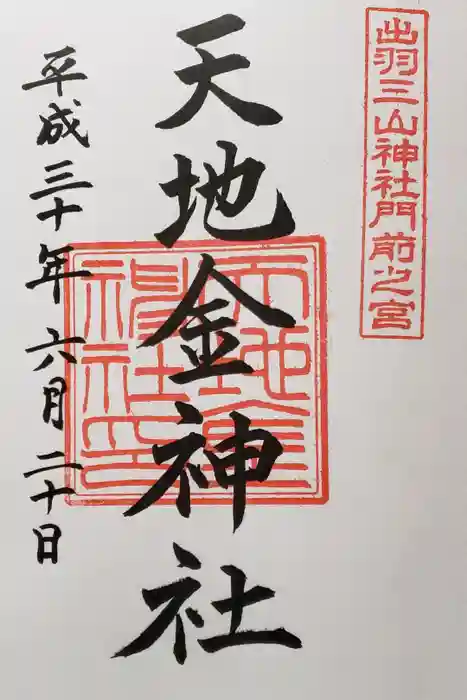 出羽三山神社門前之宮
天地金神社
天地金神社印
平成三十年六月二十日